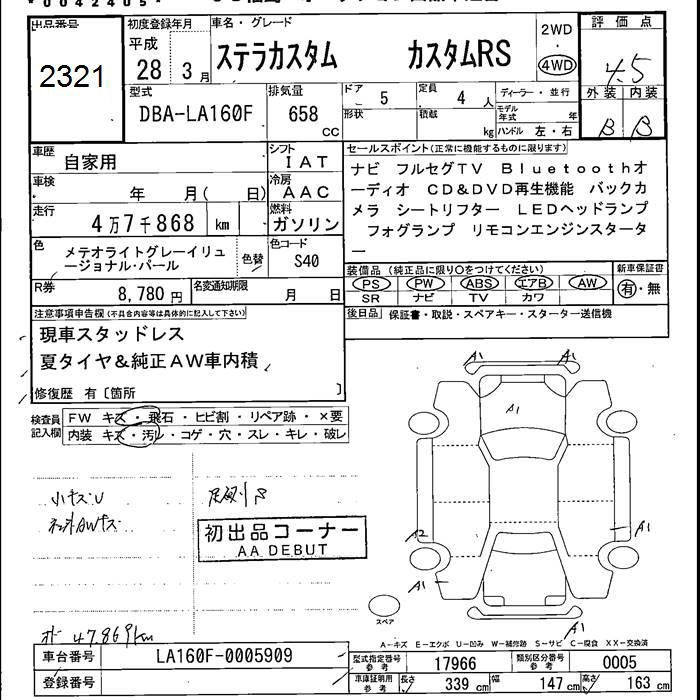 *00424051*
出品番号
2321
初度登録年月
平成
28年 3月
車名・グレード
ステラカスタム カスタムRS
2WD
・
4WD
評価点
4.5
外装 内装
B B
型式
DBA-LA160F
排気量
658
cc
ドア 5
形状
定員 4 人
積載 kg
ディーラー・並行
モデル年式 年
ハンドル 左・右
車歴 自家用
シフト IAT
車検 年 月( 日)
冷房 AAC
走行 4万7千868 km
燃料 ガソリン
色 メテオライトグレーイリュージョナル・パール
色替
色コード S40
R券 8,780円
名変通知期限 月 日
セールスポイント(正常に機能するものに限ります)
ナビ フルセグTV Bluetoothオ
ーディオ CD&DVD再生機能 バックカ
メラ シートリフター LEDヘッドランプ
フォグランプ リモコンエンジンスタータ
ー
装備品(純正品に限り○をつけてください)
PS PW ABS エアB AW
SR ナビ TV カワ
新車保証書
有・無
後日品 保証書・取説・スペアキー・スターター送信機
注意事項申告欄(不具合内容等は具体的に記入して下さい)
現車スタッドレス
夏タイヤ&純正AW車内積
修復歴 有〔箇所 〕
検査員記入欄
FW キズ・飛石・ヒビ割・リペア跡・×要
内装 キズ・汚レ・コゲ・穴・スレ・キレ・破レ
小キズU
初出品コーナー
AA DEBUT
47869km
A1 A1
A1
A2
A1
A1
A1
スペア
A−キズ E−エクボ U−凹み W−補修跡 S−サビ C−腐食 XX−交換済
車台番号 LA160F-0005909
登録番号
型式指定番号参考 17966
類別区分番号参考 0005
車庫証明用参考 長さ 339 cm 幅 147 cm 高さ 163 cm